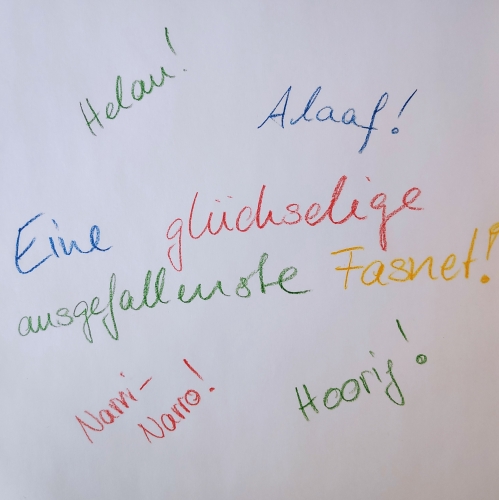 Helau!
Alaaf!
Eine glückselige
ausgefallenste Fasnet!
Narri-
Narro!
Hoorig!